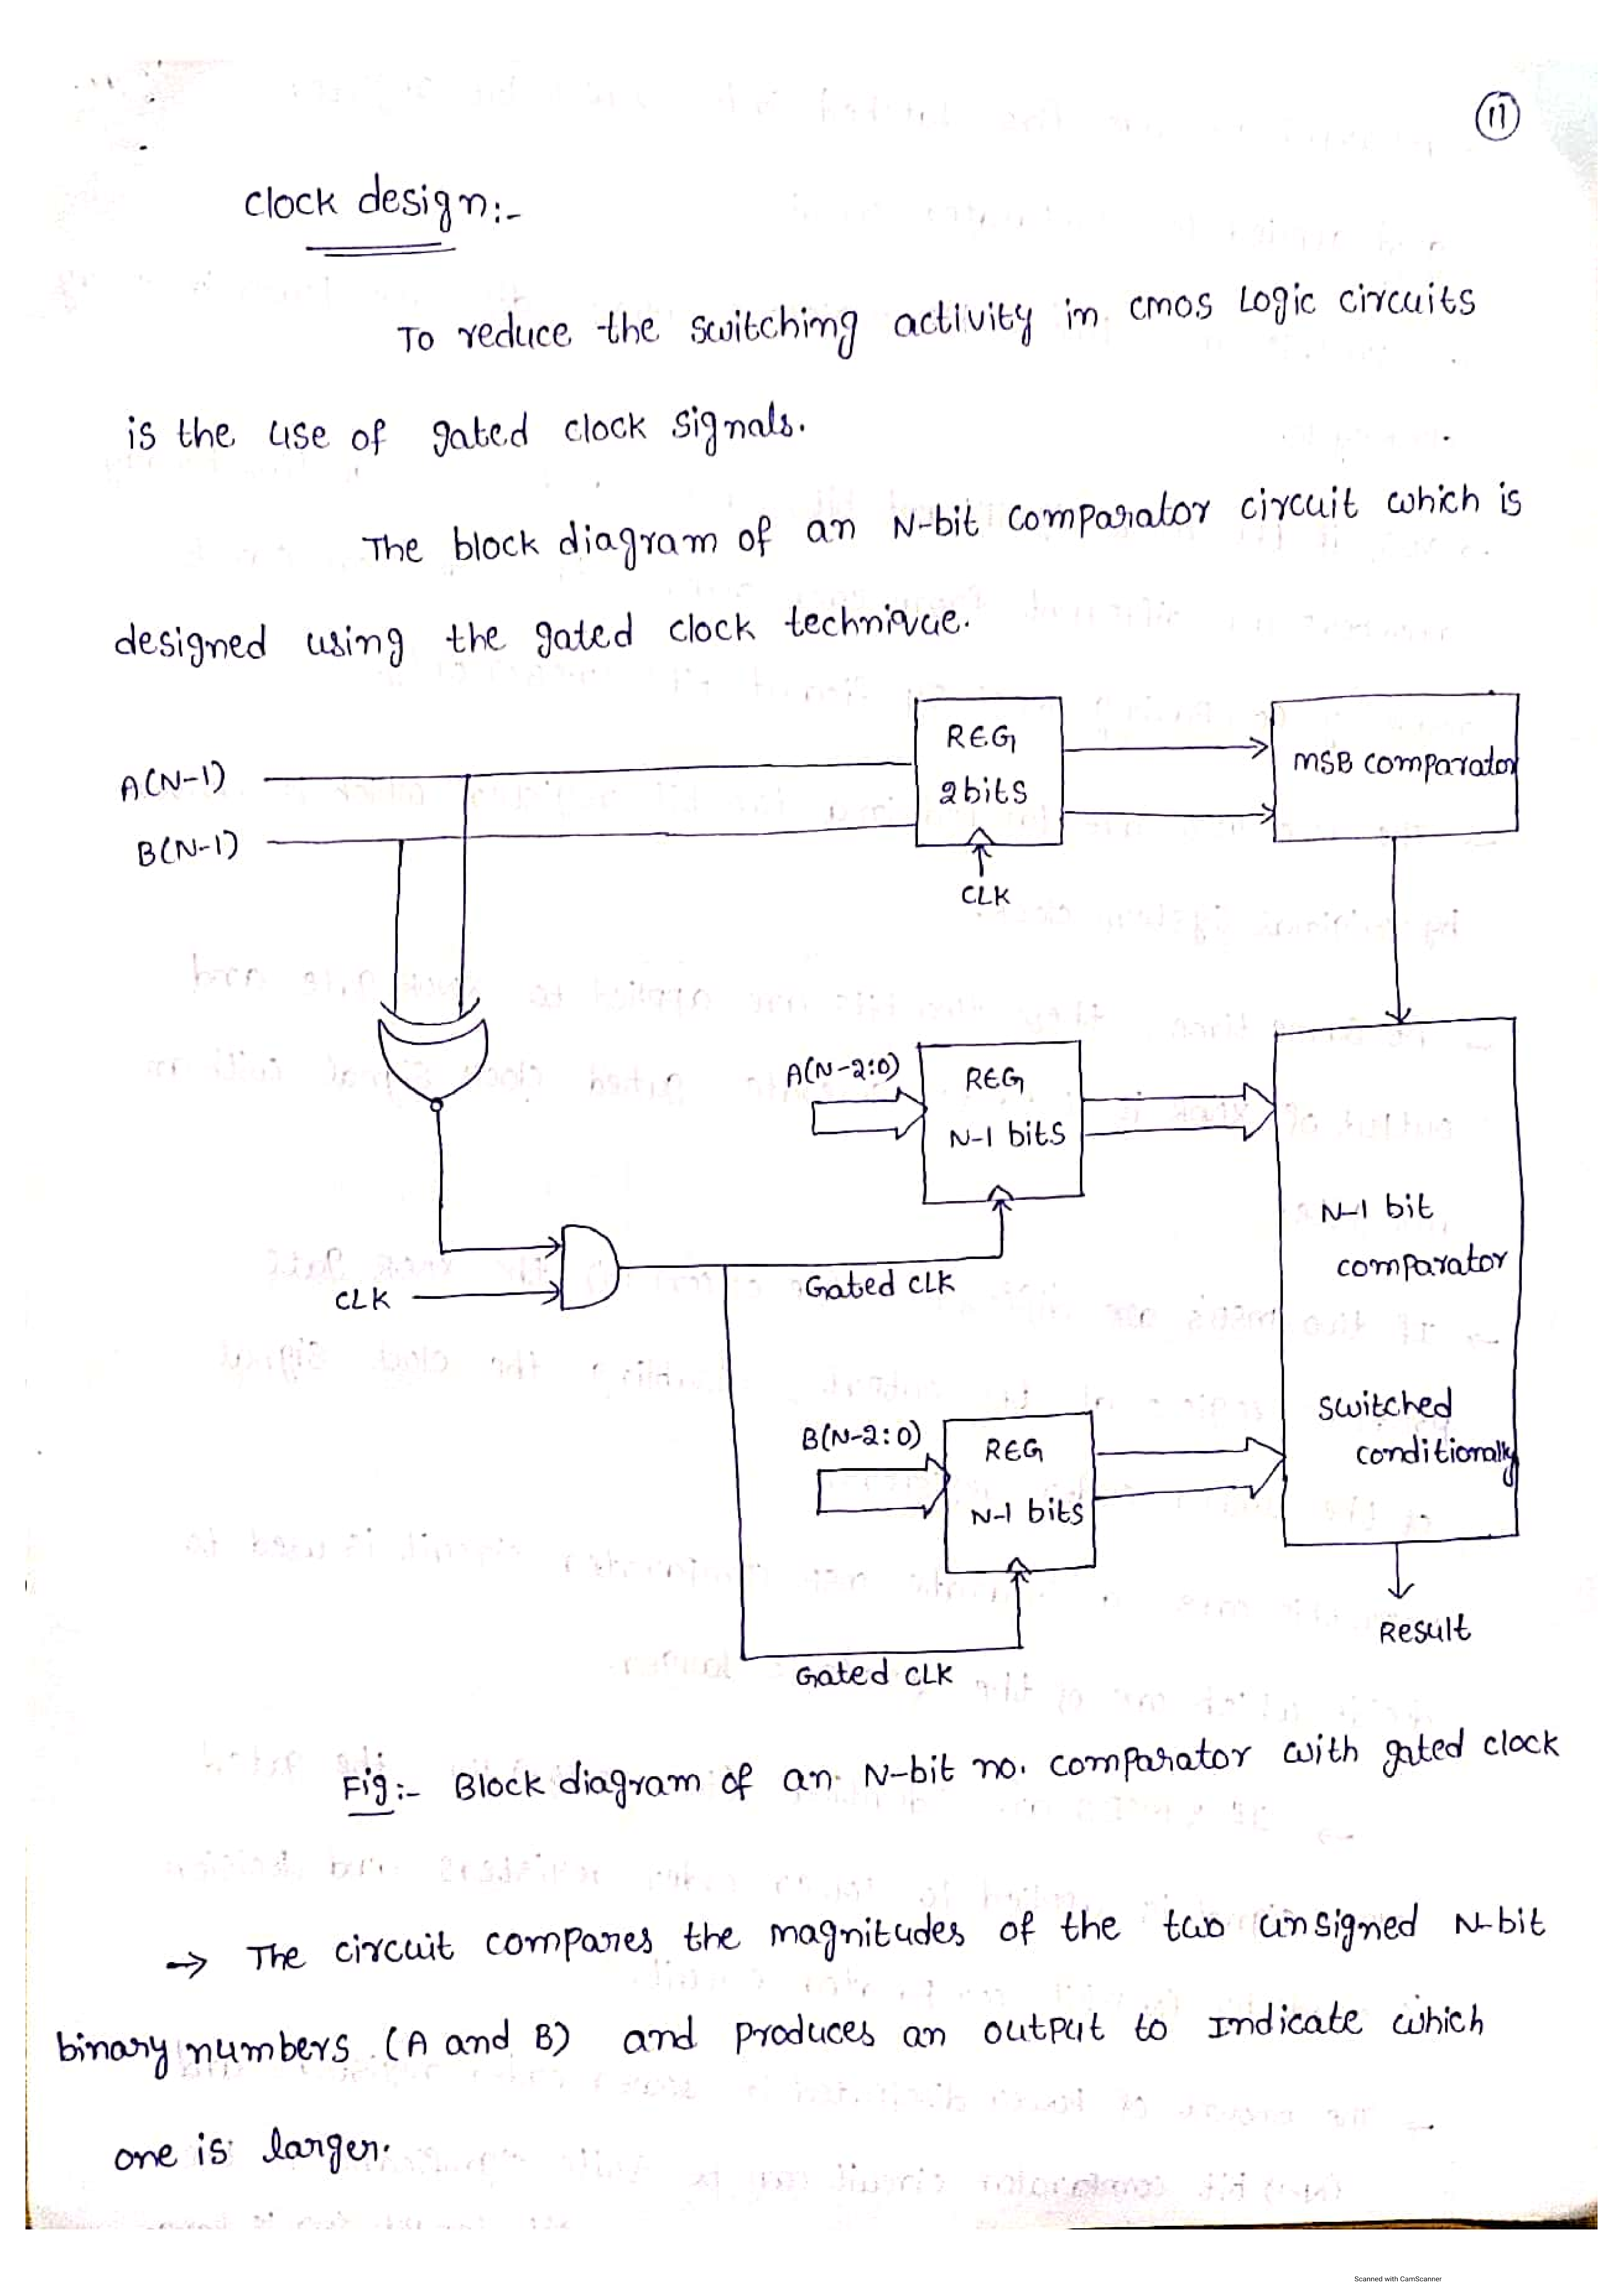 11
Clock design:-
To reduce the switching activity in cmos Logic circuits
is the use of gated clock signals.
The block diagram of an N-bit comparator circuit which is
designed using the gated clock technique.
A(N-1)
B(N-1)
REG
2bits
CLK
MSB comparator
A(N-2:0)
REG
N-1 bits
CLK
Gated CLK
N-1 bit
comparator
switched
conditionally
B(N-2:0)
REG
N-1 bits
Gated CLK
Result
Fig:- Block diagram of an N-bit no. comparator with gated clock
→ The circuit compares the magnitudes of the two unsigned N-bit
binary numbers (A and B) and produces an output to Indicate which
one is larger.
Scanned with CamScanner